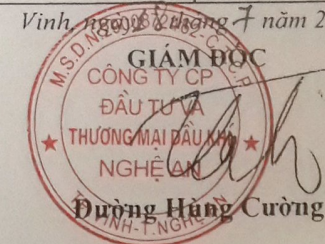 Vinh, ngày tháng 7 năm 2
GIÁM ĐỐC
CÔNG TY CP
ĐẦU TƯ VÀ
THƯƠNG MẠI DẦU KHÍ
NGHỆ AN
M.S.D.N
T.P VINH-T.NGHỆ AN
Đường Hùng Cường